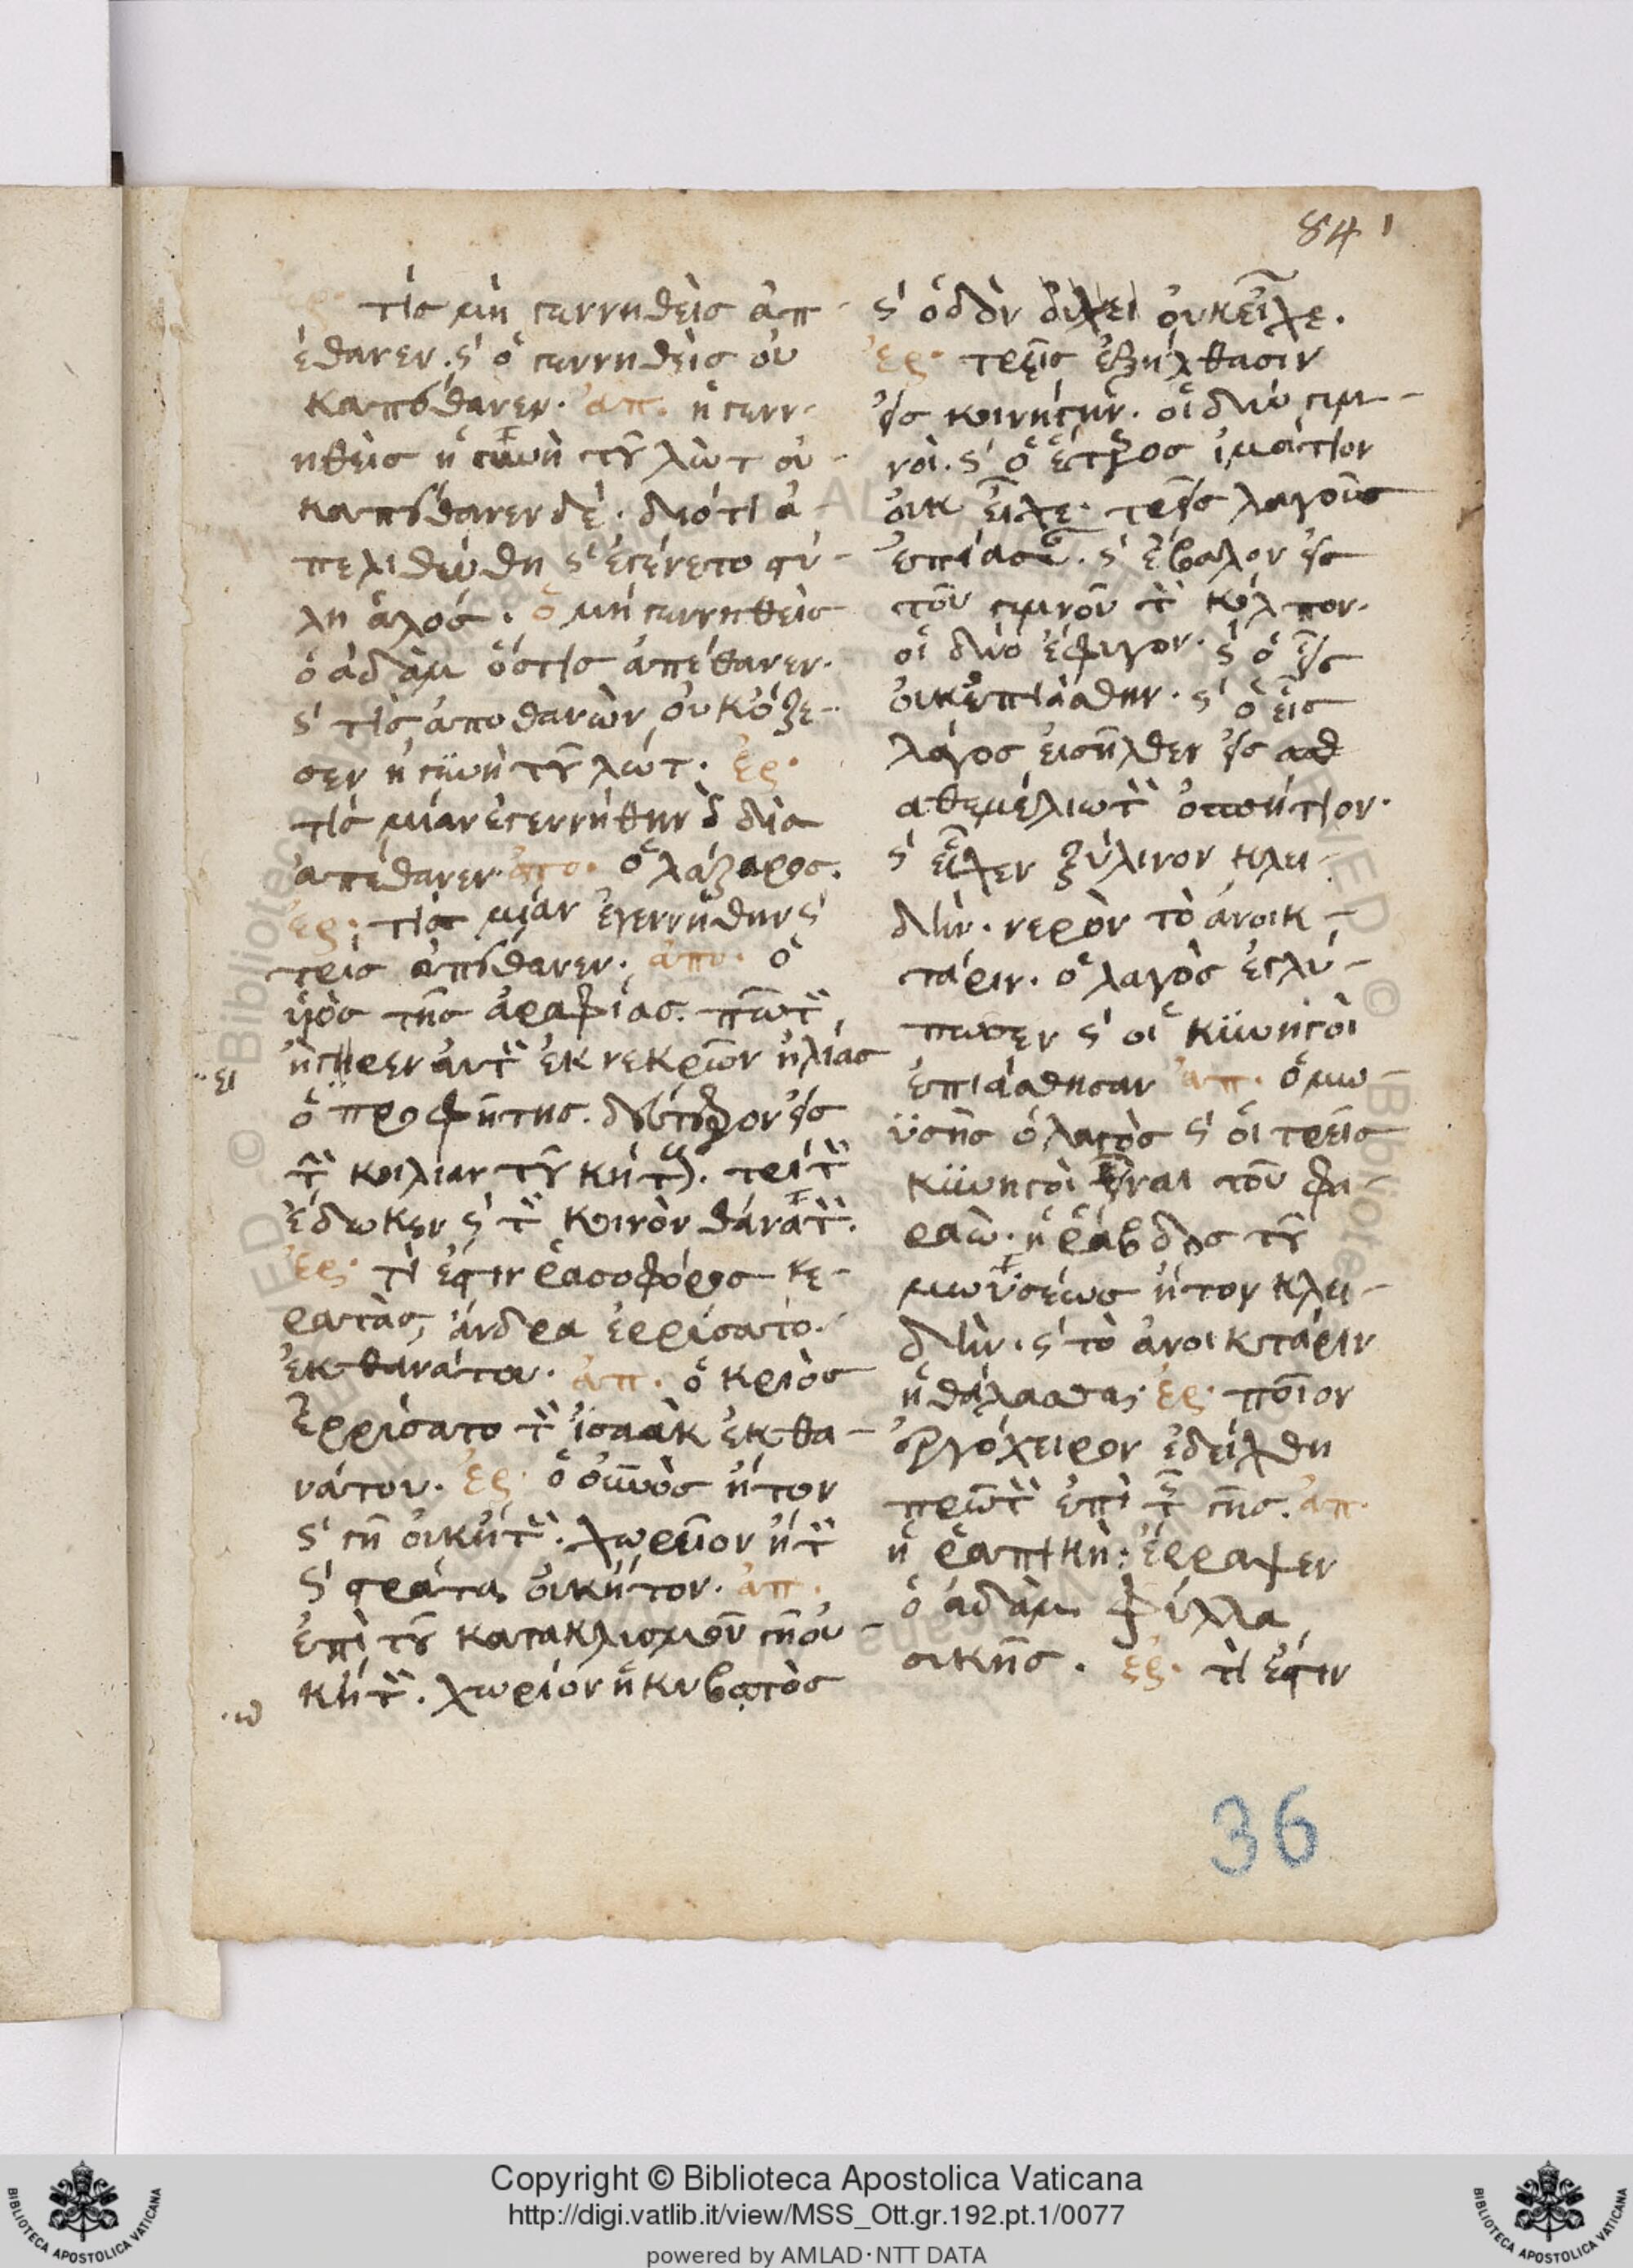 84
τίς μὴ γεννηθεὶς ἀπ
έθανεν. ϛ ὁ γεννηθεὶς οὐ
κ ἀπέθανεν. ἀπ. ἡ γενν
ηθεὶς ἡ γυνὴ τοῦ λὼτ οὐ
κ ἀπέθανεν δέ. διότι ἀ
πελιθώθη ϛ ἐγένετο στύ
λη ἁλός. ὁ μὴ γεννηθεὶς
ὁ ἀδὰμ ὅστις ἀπέθανεν.
ϛ τίς ἀποθανὼν οὐκ ὄζε
σεν ἡ γυνὴ τοῦ λώτ. ἐρ.
τίς μίαν ἐγεννήθην δ δία
ἀπέθανεν. ἀπο. ὁ λάζαρος.
ἐρ. τίς μίαν ἐγεννήθην ϛ
τρὶς ἀπέθανεν. ἀπο. ὁ
ϊὸς τῆς
ἤγειρεν αυτ ἐκ νεκρῶν ἠλίας
ει
ὁ προφήτης. δεύτερον εἰς
τ κοιλίαν τοῦ κήτ. τρίτ
ἔδωκεν ϛ τ κοινὸν θάνατ.
ἐρ. τί ἐστιν ῥασοφόρος κε
ρατὰς, ἄνδρα ἐρρίσατο
ἐκ θανάτου. ἀπ. ὁ κριὸς
ἐρρίσατο τ ἰσαὰκ ἐκ θα
νάτου. ἐρ. ὁ οὐνὸς ἤτον
ϛ γῆ οὐκ ήτ. χωρίον ήτ
ϛ στράτα οὐκ ήτον. ἀπ.
ἐπὶ τοῦ κατακλισμοῦ γῆ οὐ
κ ήτ. χωρίον ἡ κυβωτὸς
ω
ϛ ὁδὸν οὐκ εἶχε.
ἐρ. τρεῖς ἐξήλθασιν
εἰς κοινήγην. οἱ δύο γυμ
νοὶ. ϛ ὁ ἕτερος ἱμάτιον
οὐκ εἶχε. τρεῖς λαγοὺς
ἐπίασαν. ϛ ἔβαλον εἰς
τοῦ γυμνοῦ τ κόλπον.
οἱ δύο ἔφυγον. ϛ ὁ εἷς
οὐκ ἐπιάσθην. ϛ ὁ εἷς
λάγος εἰσῆλθεν εἰς αθ
αθεμέλιωτ ὁσπήτιον.
ϛ εἶχεν ξύλινον κλει
δὴν. νερὸν τὸ ἀνοικ
τάριν. ὁ λαγὸς ἐγλύ
τωσεν ϛ οἱ κϋνηγοὶ
ἐπιάσθησαν ἀπ. ὁ μω
ϋσῆς ὁ λαγὸς ϛ οἱ τρεῖς
κϋνηγοὶ εἶναι τοῦ φα
ραὼ. ἡ ῥάβδος τοῦ
μωϋσέως ἤτον κλει
δὴν. ϛ τὸ ἀνοικτάριν
ἡ θάλασσα, ἐρ. ποῖον
ἐργόχειρον ἐδείχθη
πρῶτ ἐπὶ τ γῆς. ἀπ.
ἡ ῥαπτκὴ. ἔρραψεν
ὁ ἀδὰμ φύλλα
συκῆς. ἐρ. τί ἐστιν
36
Copyright © Biblioteca Apostolica Vaticana
http://digi.vatlib.it/view/MSS_Ott.gr.192.pt.1/0077
powered by AMLAD·NTT DATA
BIBLIOTECA APOSTOLICA VATICANA
BIBLIOTECA APOSTOLICA VATICANA